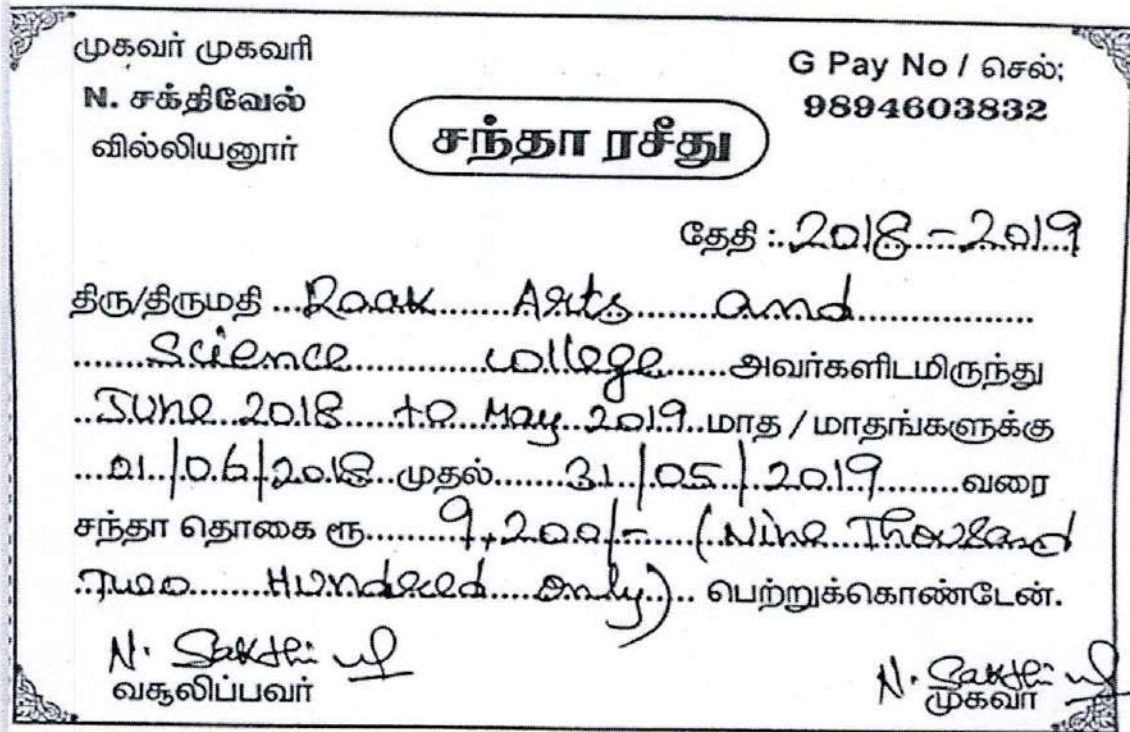 முகவர் முகவரி
N. சக்திவேல்
வில்லியனூர்
G Pay No / செல்;
9894603832
சந்தா ரசீது
தேதி : 2018 - 2019
திரு/திருமதி Raak Arts and
Science college அவர்களிடமிருந்து
June 2018 to May 2019 மாத / மாதங்களுக்கு
01/06/2018 முதல் 31/05/2019 வரை
சந்தா தொகை ரூ 9,200/- (Nine Thousand
Two Hundred only) பெற்றுக்கொண்டேன்.
N. Sakthi
வசூலிப்பவர்
N. Sakthi
முகவர்